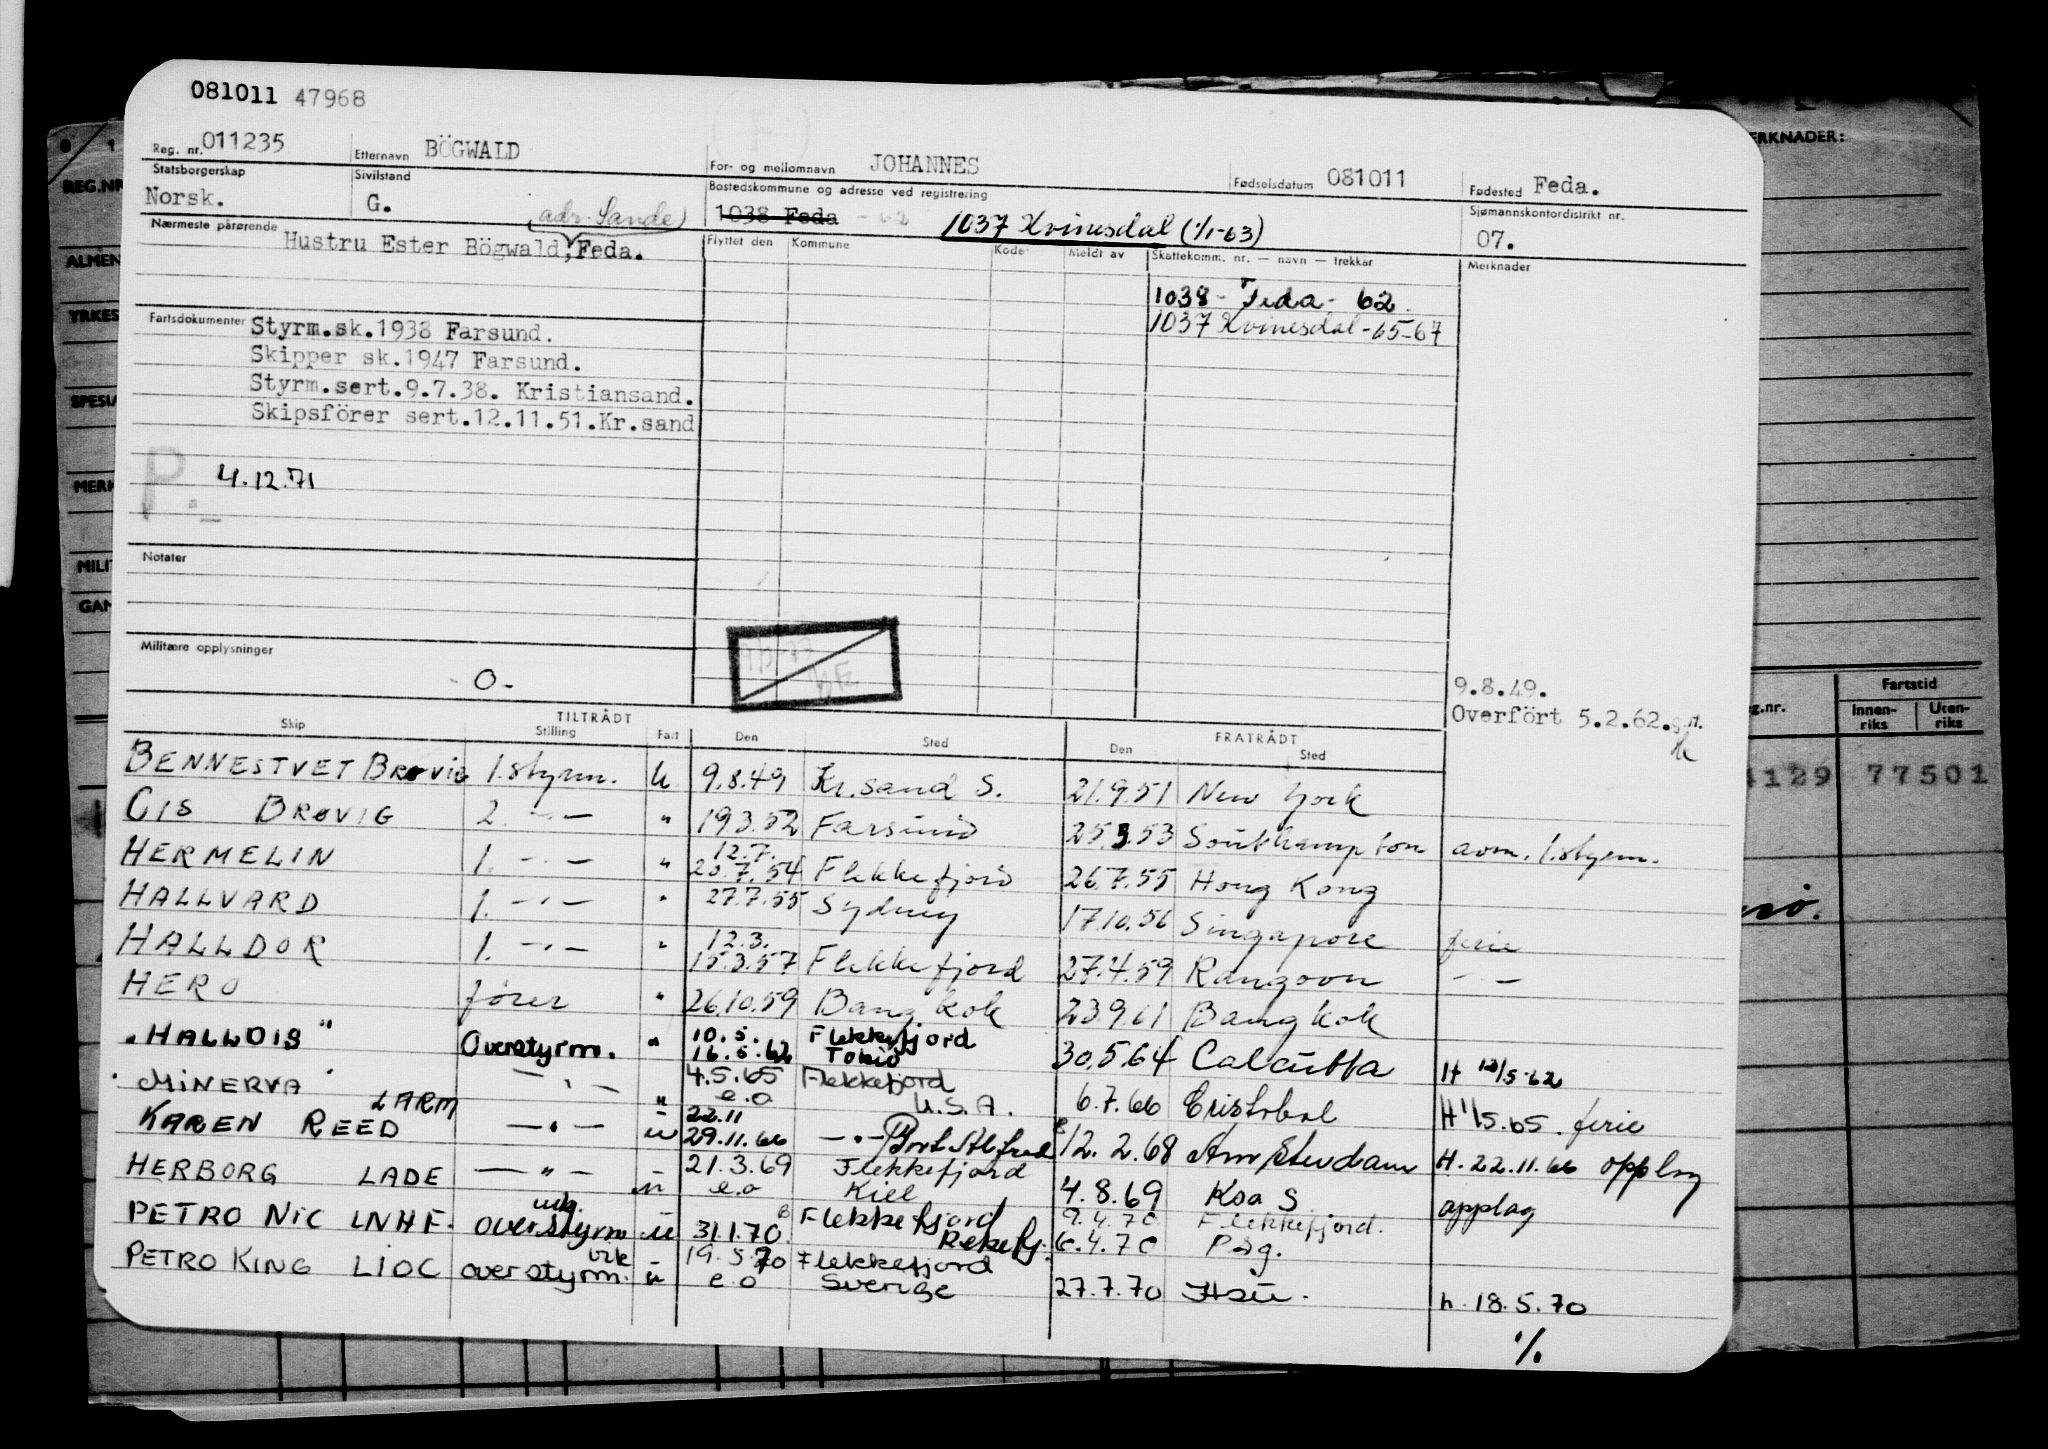 081011 47968
Reg. nr. 011235 Etternavn BÖGWALD For- og mellomnavn JOHANNES Fødselsdatum 081011 Fødested Feda.
Statsborgerskap Norsk. Sivilstand G. Bostedskommune og adresse ved registrering 1038 Feda - 62 1037 Kvinesdal (1/1-63) Sjømannskontordistrikt nr. 07.
(adr. Sande)
Nærmeste pårørende Hustru Ester Bögwald, Feda. Flyttet den Kommune Kode Meldt av Skattekomm. nr. — navn — trekkår Merknader
1038 - Feda - 62.
1037 Kvinesdal - 65-67
Fartsdokumenter Styrm.sk.1938 Farsund.
Skipper sk.1947 Farsund.
Styrm.sert.9.7.38. Kristiansand.
Skipsförer sert.12.11.51.Kr.sand
P. 4.12.71
Notater
Militære opplysninger
- O -
9.8.49.
Overfört 5.2.62.
Skip TILTRÅDT Stilling Fart Den Sted FRATRÅDT Den Sted
BENNESTVET BRØVIG 1. styrm. U 9.8.49 Kr.sand S. 21.9.51 New York
CIS BRØVIG 2. -"- " 19.3.52 Farsund 25.3.53 Southampton avm. 1. styrm.
HERMELIN 1. -"- " 12.7. 20.7.54 Flekkefjord 26.7.55 Hong Kong
HALLVARD 1. -"- " 27.7.55 Sydney 17.10.56 Singapore ferie
HALLDOR 1. -"- " 12.3. 15.3.57 Flekkefjord 27.4.59 Rangoon -"-
HERO fører " 26.10.59 Bangkok 23.9.61 Bangkok
"HALLDIS" Overstyrm. " 10.5. 16.5.62 Flekkefjord Tokio 30.5.64 Calcutta H 10/5-62
"MINERVA" -"- " 4.5.65 e.o Flekkefjord U.S.A. 6.7.66 Cristobal H 1/5.65. ferie
KAREN REED LARM -"- u 22.11 29.11.66 -"- Port Alfred 12.2.68 Amsterdam H. 22.11.66 opplag
HERBORG LADE -"- u 21.3.69 e.o Flekkefjord Kiel 4.8.69 Ksa S opplag
PETRO NIC LNHF. overstyrm vik. u 31.1.70 Flekkefjord Rekefj. 9.4.70 6.4.70 Flekkefjord. Psg.
PETRO KING LIOC overstyrm. vik u 19.5.70 e.o Flekkefjord Sverige 27.7.70 Hsü. h. 18.5.70
%
ERKNADER:
REG.NR
ALMEN
YRKES
SPESIA
MERK
MILIT
GAN
Fartstid
g.nr. Innen-riks Uten-riks
4129 77501